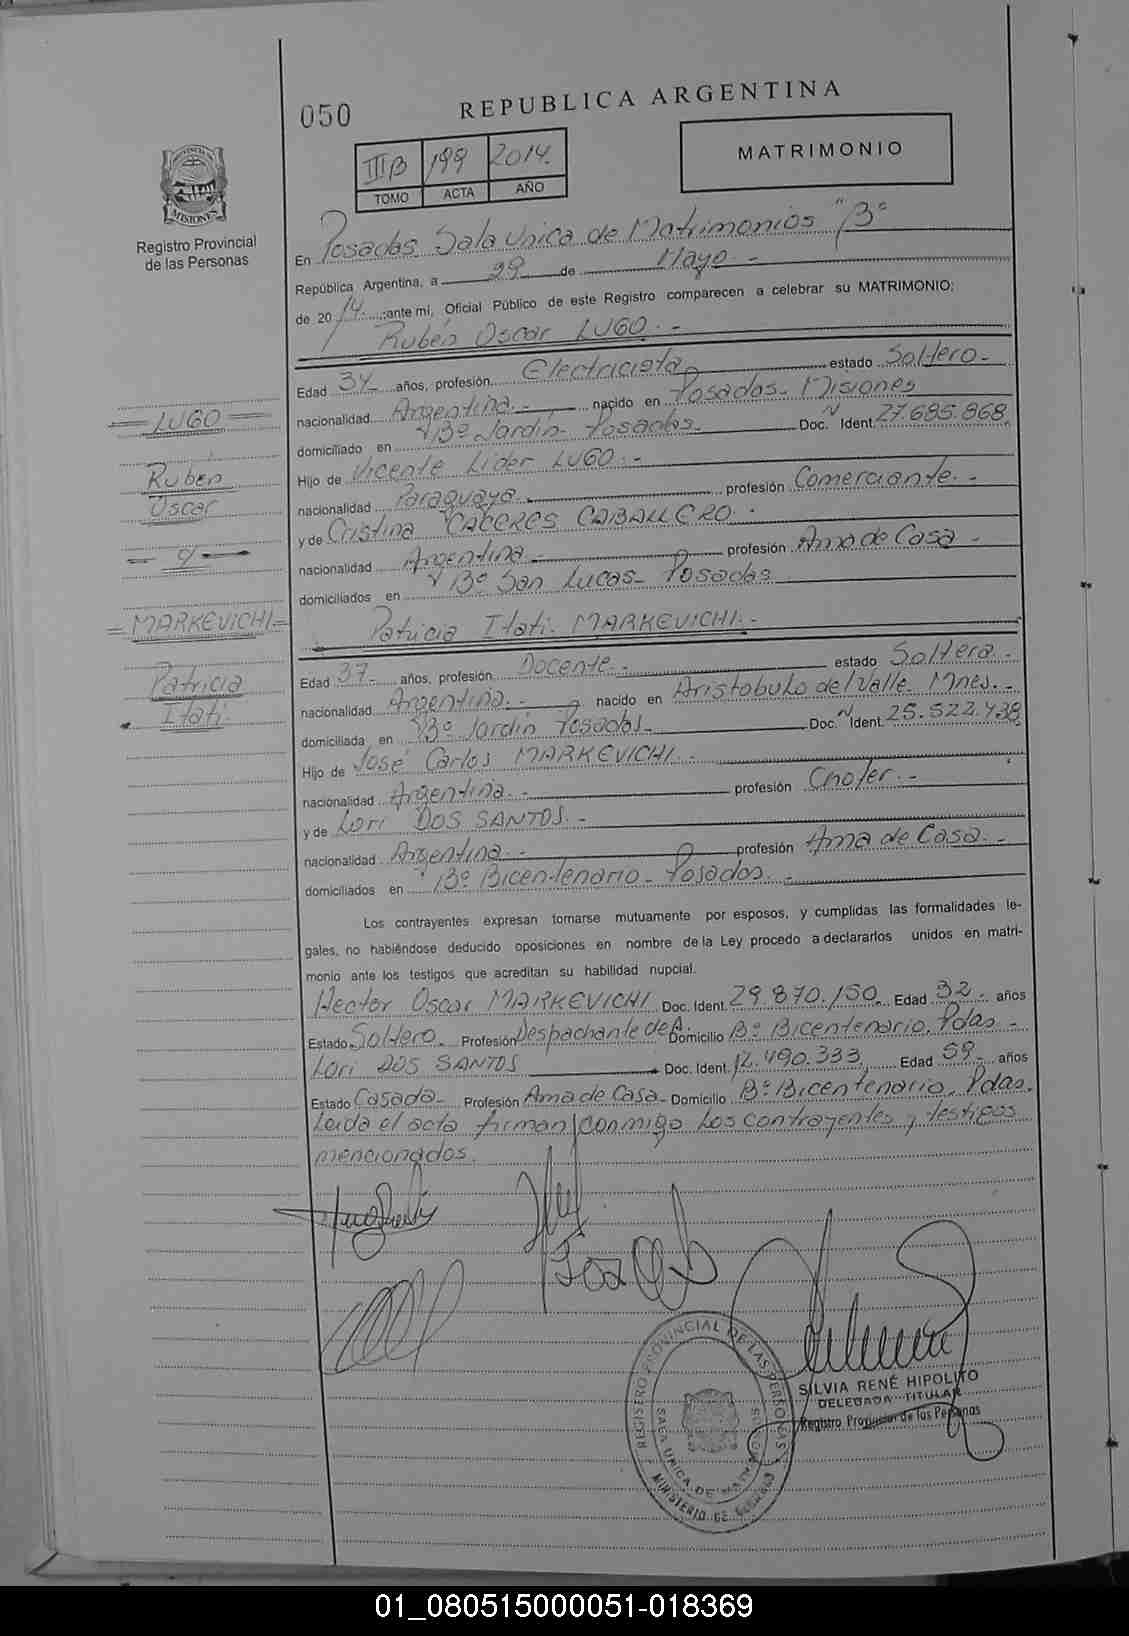 050
REPUBLICA ARGENTINA
IIIB 199 2014.
TOMO ACTA AÑO
MATRIMONIO
PROVINCIA
MISIONES
Registro Provincial
de las Personas
En Posadas Sala Unica de Matrimonios "B"
República Argentina, a 29 de Mayo.-
de 2014. ;ante mí, Oficial Público de este Registro comparecen a celebrar su MATRIMONIO:
Rubén Oscar LUGO.-
Edad 34 años, profesión Electricista estado Soltero-
nacionalidad Argentina.- nacido en Posadas- Misiones
domiciliado en Bº Jardín- Posadas. Doc. N Ident. 27.685.868.
Hijo de Vicente Lider LUGO.-
nacionalidad Paraguaya. profesión Comerciante.-
y de Cristina CACERES CABALLERO.
nacionalidad Argentina.- profesión Ama de Casa-
domiciliados en Bº San Lucas- Posadas
Patricia Itati. MARKEVICHI.-
Edad 37- años, profesión Docente.- estado Soltera-
nacionalidad Argentina.- nacido en Aristobulo del Valle. Mnes.-
domiciliada en Bº Jardín Posadas Doc. N Ident. 25.522.438
Hijo de José Carlos MARKEVICHI.-
nacionalidad Argentina.- profesión Chofer.-
y de Lori DOS SANTOS.-
nacionalidad Argentina.- profesión Ama de Casa.-
domiciliados en Bº Bicentenario- Posadas.-
Los contrayentes expresan tomarse mutuamente por esposos, y cumplidas las formalidades le-
gales, no habiéndose deducido oposiciones en nombre de la Ley procedo a declararlos unidos en matri-
monio ante los testigos que acreditan su habilidad nupcial.
Hector Oscar MARKEVICHI Doc. Ident. 29.870.150. Edad 32- años
Estado Soltero. Profesión Despachante de A. Domicilio Bº Bicentenario. Pdas-
Lori DOS SANTOS Doc. Ident. 12.490.333 Edad 59- años
Estado Casada- Profesión Ama de Casa- Domicilio Bº Bicentenario, Pdas.
Leida el acta firman conmigo los contrayentes y testigos
mencionados.
LUGO
Rubén
Oscar
= y =
=MARKEVICHI=
Patricia
Itati.
REGISTRO PROVINCIAL DE LAS PERSONAS
SALA UNICA DE MATRIMONIOS
MINISTERIO DE GOBIERNO
SILVIA RENÉ HIPOLITO
DELEGADA TITULAR
Registro Provincial de las Personas
01_080515000051-018369